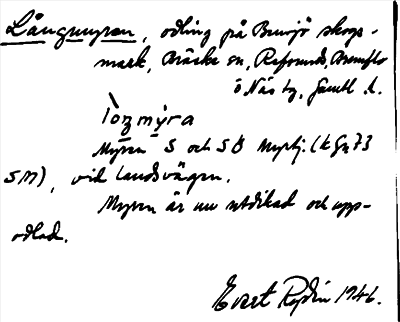 Långmyren, odling på Bensjö skogs-
mark, Bräcke sn, Refsunds, Brunflo
o Näs tg, Jämtl. l.
Toŋmýra
Myren S och SÖ Myrtj. (kgn 73
SM), vid landsvägen.
Myren är nu utdikad och upp-
odlad.
Evert 1946.